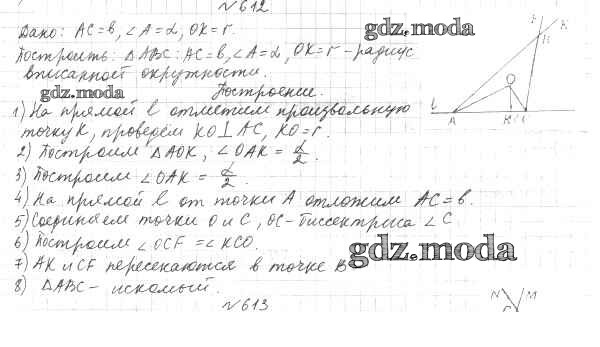 №612
Дано: AC=b, ∠A=α, OK=r. gdz.moda
Построить: ΔABC: AC=b, ∠A=α, OK=r - радиус
вписанной окружности.
gdz.moda Построение.
1) На прямой l отметим произвольную
точку K, проведем KO⊥AC, KO=r.
2) Построим ΔAOK, ∠OAK = α/2.
3) Построим ∠OAK = α/2.
4) На прямой l от точки A отложим AC=b.
5) Соединяем точки O и C, OC-биссектриса ∠C
6) Построим ∠OCF =∠KCO.
7) AK и CF пересекаются в точке B
8) ΔABC - искомый.
gdz.moda
№613
F K
B
O
l A K C
N M